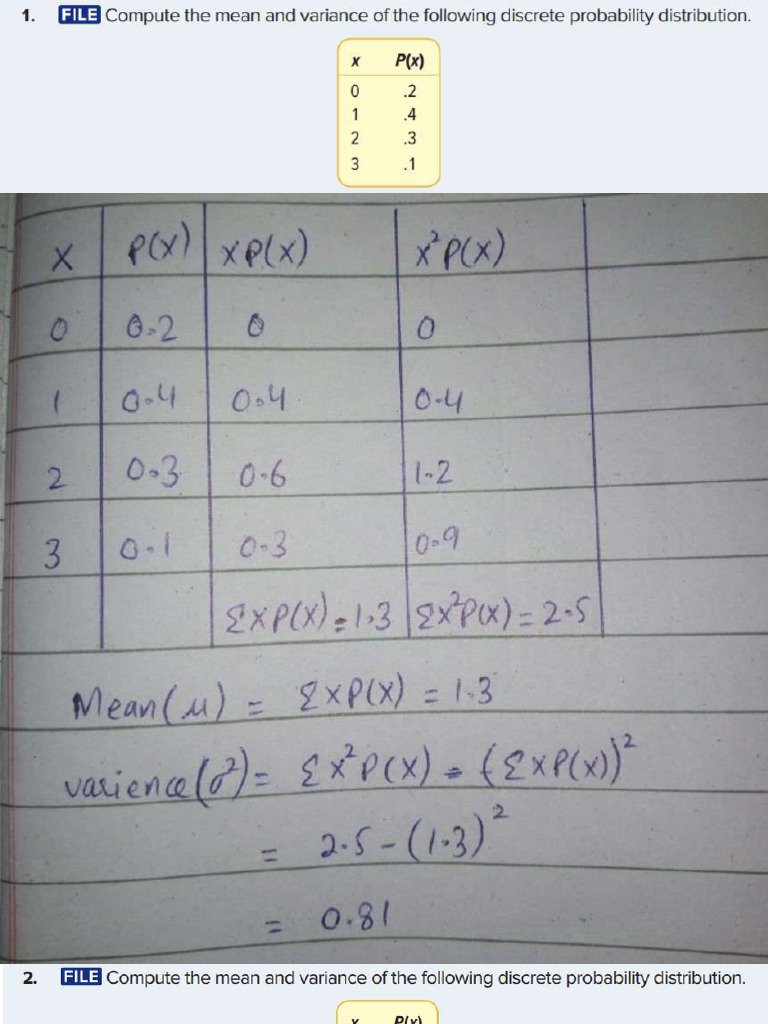 1. FILE Compute the mean and variance of the following discrete probability distribution.
x P(x)
0 .2
1 .4
2 .3
3 .1
x P(x) xP(x) x²P(x)
0 0.2 0 0
1 0.4 0.4 0.4
2 0.3 0.6 1.2
3 0.1 0.3 0.9
ΣxP(x) = 1.3 Σx²P(x) = 2.5
Mean(μ) = ΣxP(x) = 1.3
varience(σ²) = Σx²P(x) - (ΣxP(x))²
= 2.5 - (1.3)²
= 0.81
2. FILE Compute the mean and variance of the following discrete probability distribution.
x P(x)